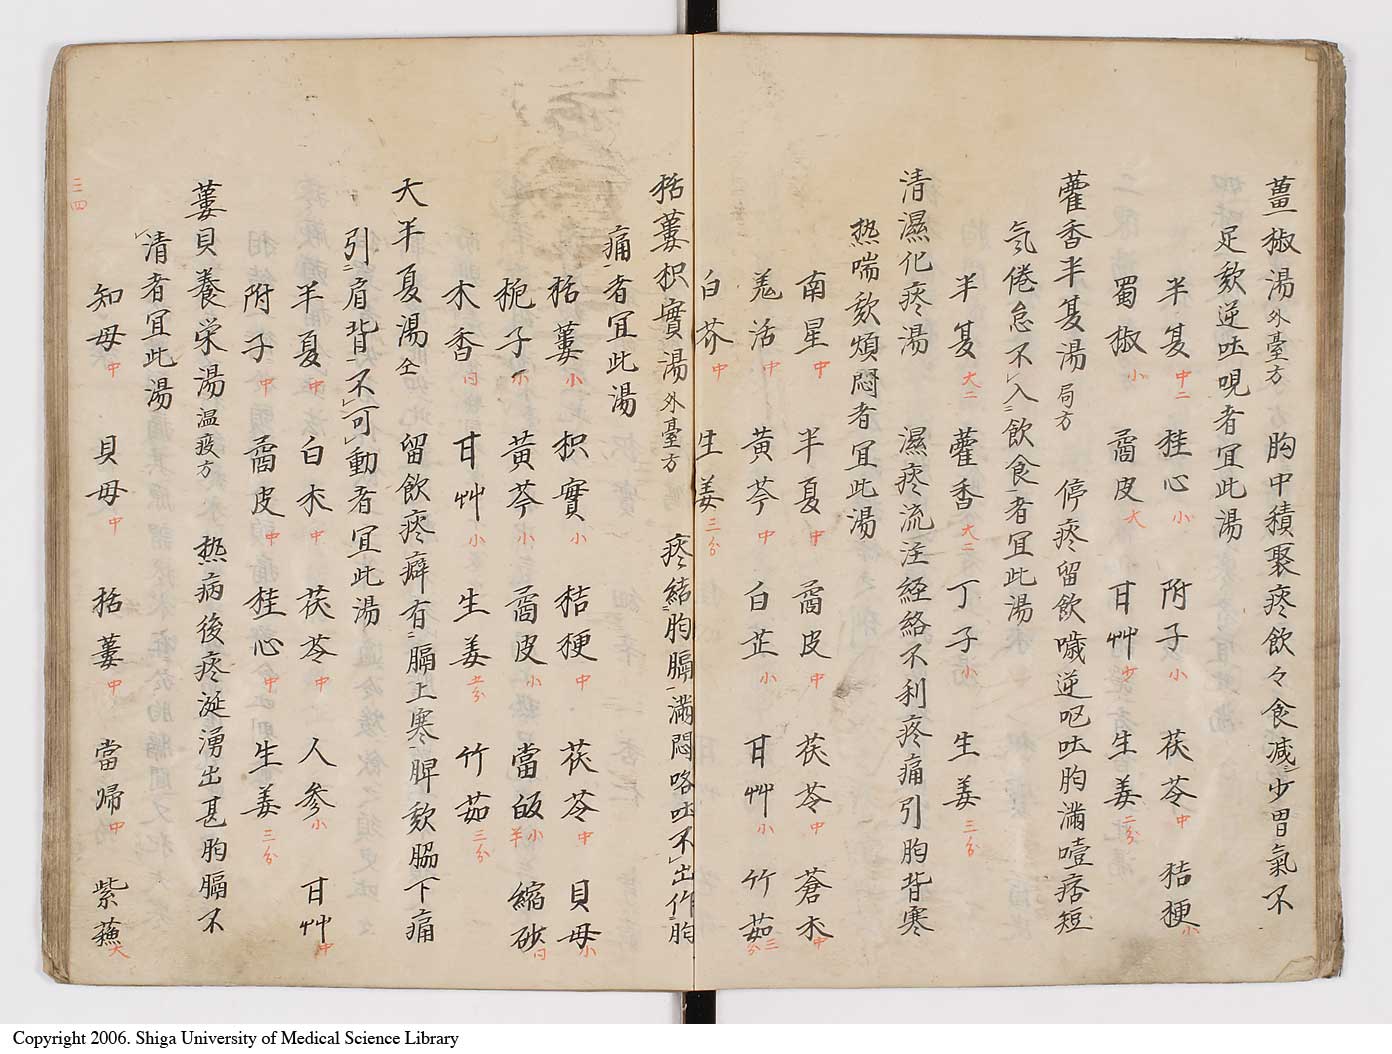 薑椒湯外臺方 胸中積聚痰飲々食减少胃氣不
足欬逆吐呪者宜此湯
半夏中二 桂心小 附子小 茯苓中 桔梗小
蜀椒小 喬皮大 甘艸少 生姜二分
藿香半夏湯局方 停痰留飲噦逆呕吐胷滿噎痞短
気倦怠不入飲食者宜此湯
半夏大二 藿香大二 丁子小 生姜三分
清濕化痰湯 濕痰流注経絡不利痰痛引胷背寒
热喘欬煩悶者宜此湯
南星中 半夏中 喬皮中 茯苓中 蒼木中
羗活中 黄芩中 白芷小 甘艸小 竹茹三分
白芥中 生姜三分
栝蔞枳實湯外臺方 痰結胷膈滿悶咯吐不出作胷
痛者宜此湯
栝蔞小 枳實小 桔梗中 茯苓中 貝母小
梔子小 黄芩小 喬皮小 當皈小羊 縮砂
木香 甘艸小 生姜五分 竹茹三分
大半夏湯仝 留飲痰癖有膈上寒脾欬脇下痛
引肩背不可動者宜此湯
半夏中 白木中 茯苓中 人参小 甘艸中
附子中 喬皮 桂心中 生姜三分
蔞貝養栄湯温疫方 热病後痰涎湧出甚胷膈不
清者宜此湯
知母中 貝母中 栝蔞中 當帰中 紫蘓大
三四
Copyright 2006. Shiga University of Medical Science Library